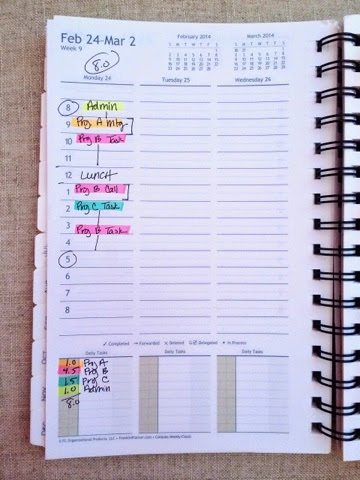 Feb 24-Mar 2
Week 9
8.0
February 2014
March 2014
Monday 24
Tuesday 25
Wednesday 26
8 Admin
9 Proj A Mtg
10 Proj B Task
11
12 LUNCH
1 Proj B Call
2 Proj C Task
3 Proj B Task
4
5
6
7
8
✓ Completed → Forwarded × Deleted Delegated • In Process
Daily Tasks
Daily Tasks
Daily Tasks
1.0 Proj A
4.5 Proj B
1.5 Proj C
1.0 Admin
8.0